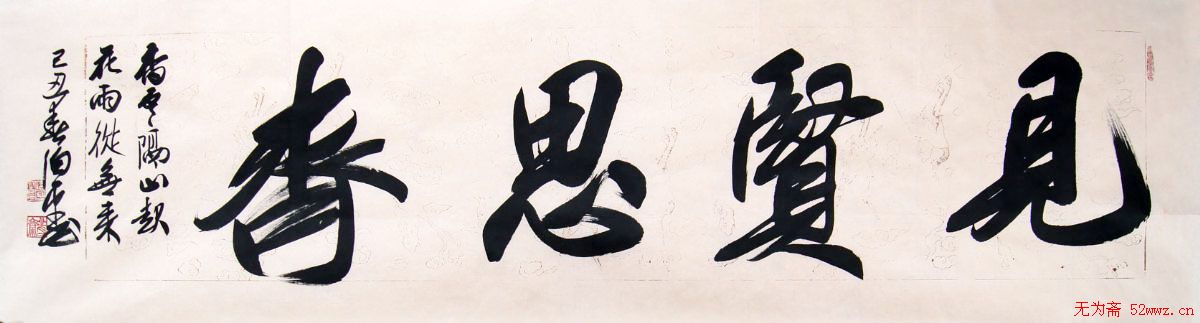 見賢思齊
香雲徧山起
花雨從天来
己丑春伯平书
无为斋 52wwz.cn